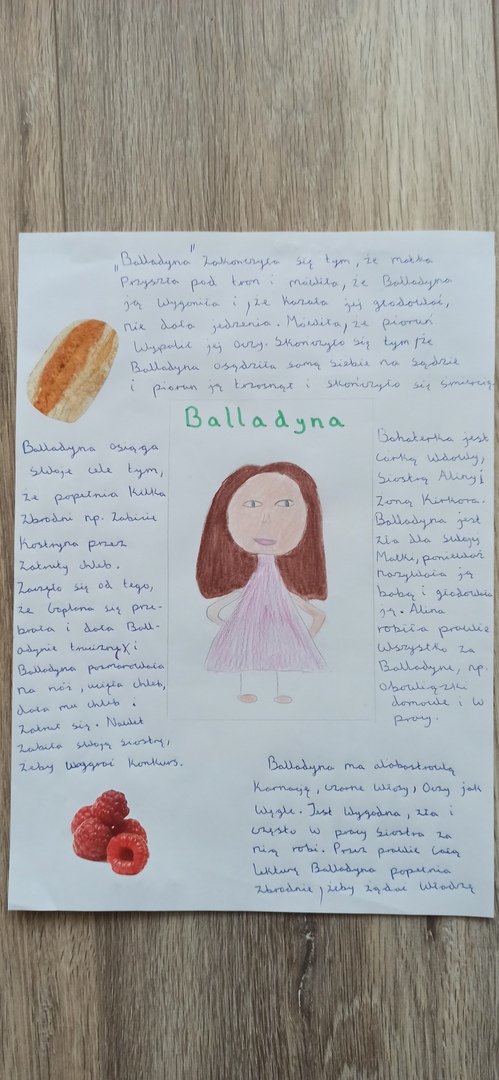 "Balladyna" Zakończyła się tym, że matka
Przyszła pod tron i mówiła, że Balladyna
ją wygoniła i, że kazała jej głodować,
nie dała jedzenia. Mówiła, że piorun
Wypalić jej oczy. Skończyło się tym że
Balladyna osądziła samą siebie na sądzie
i piorun ją trzasnął i skończyło się śmiercią.
Balladyna
Balladyna osiąga
swoje cele tym,
że popełnia kilka
zbrodni np. Zabicie
Kostryna przez
Zatruty chleb.
Zaczęło się od tego,
że Grplona się prze-
brała i dała Ball-
adynie truciznę i
Balladyna posmarowała
na nóż, ucięła chleb,
dała mu chleb i
Zatruł się. Nawet
Zabiła swoją siostrę,
żeby wygrać konkurs.
Bohaterka jest
córką Wdowy,
siostrą Aliny i
żoną Kirkora.
Balladyna jest
zła dla swojej
Matki, ponieważ
nazywała ją
babą i głodowała
ją. Alina
robiła prawie
wszystko za
Balladynę, np.
obowiązki
domowe i w
pracy.
Balladyna ma alabastrową
Karnację, czarne włosy, Oczy jak
węgle. Jest wygodna, zła i
często w pracy siostra za
nią robi. Przez prawie całą
lekturę Balladyna popełnia
zbrodnie, żeby żądać władzą